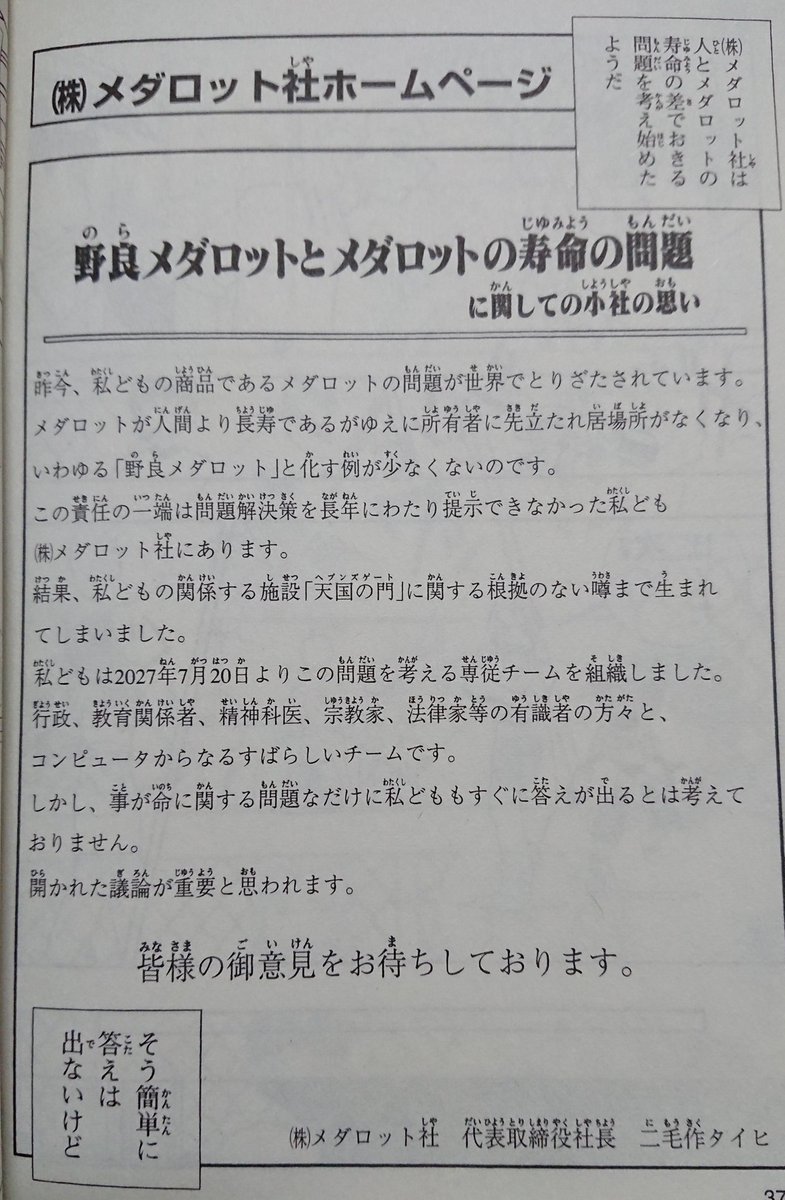 ㈱メダロット社は
人とメダロットの
寿命の差でおきる
問題を考え始めた
ようだ
㈱メダロット社ホームページ
野良メダロットとメダロットの寿命の問題
に関しての小社の思い
昨今、私どもの商品であるメダロットの問題が世界でとりざたされています。
メダロットが人間より長寿であるがゆえに所有者に先立たれ居場所がなくなり、
いわゆる「野良メダロット」と化す例が少なくないのです。
この責任の一端は問題解決策を長年にわたり提示できなかった私ども
㈱メダロット社にあります。
結果、私どもの関係する施設「天国の門」に関する根拠のない噂まで生まれ
てしまいました。
私どもは2027年7月20日よりこの問題を考える専従チームを組織しました。
行政、教育関係者、精神科医、宗教家、法律家等の有識者の方々と、
コンピュータからなるすばらしいチームです。
しかし、事が命に関する問題なだけに私どももすぐに答えが出るとは考えて
おりません。
開かれた議論が重要と思われます。
皆様の御意見をお待ちしております。
㈱メダロット社　代表取締役社長　二毛作タイヒ
そう簡単に
答えは
出ないけど
37